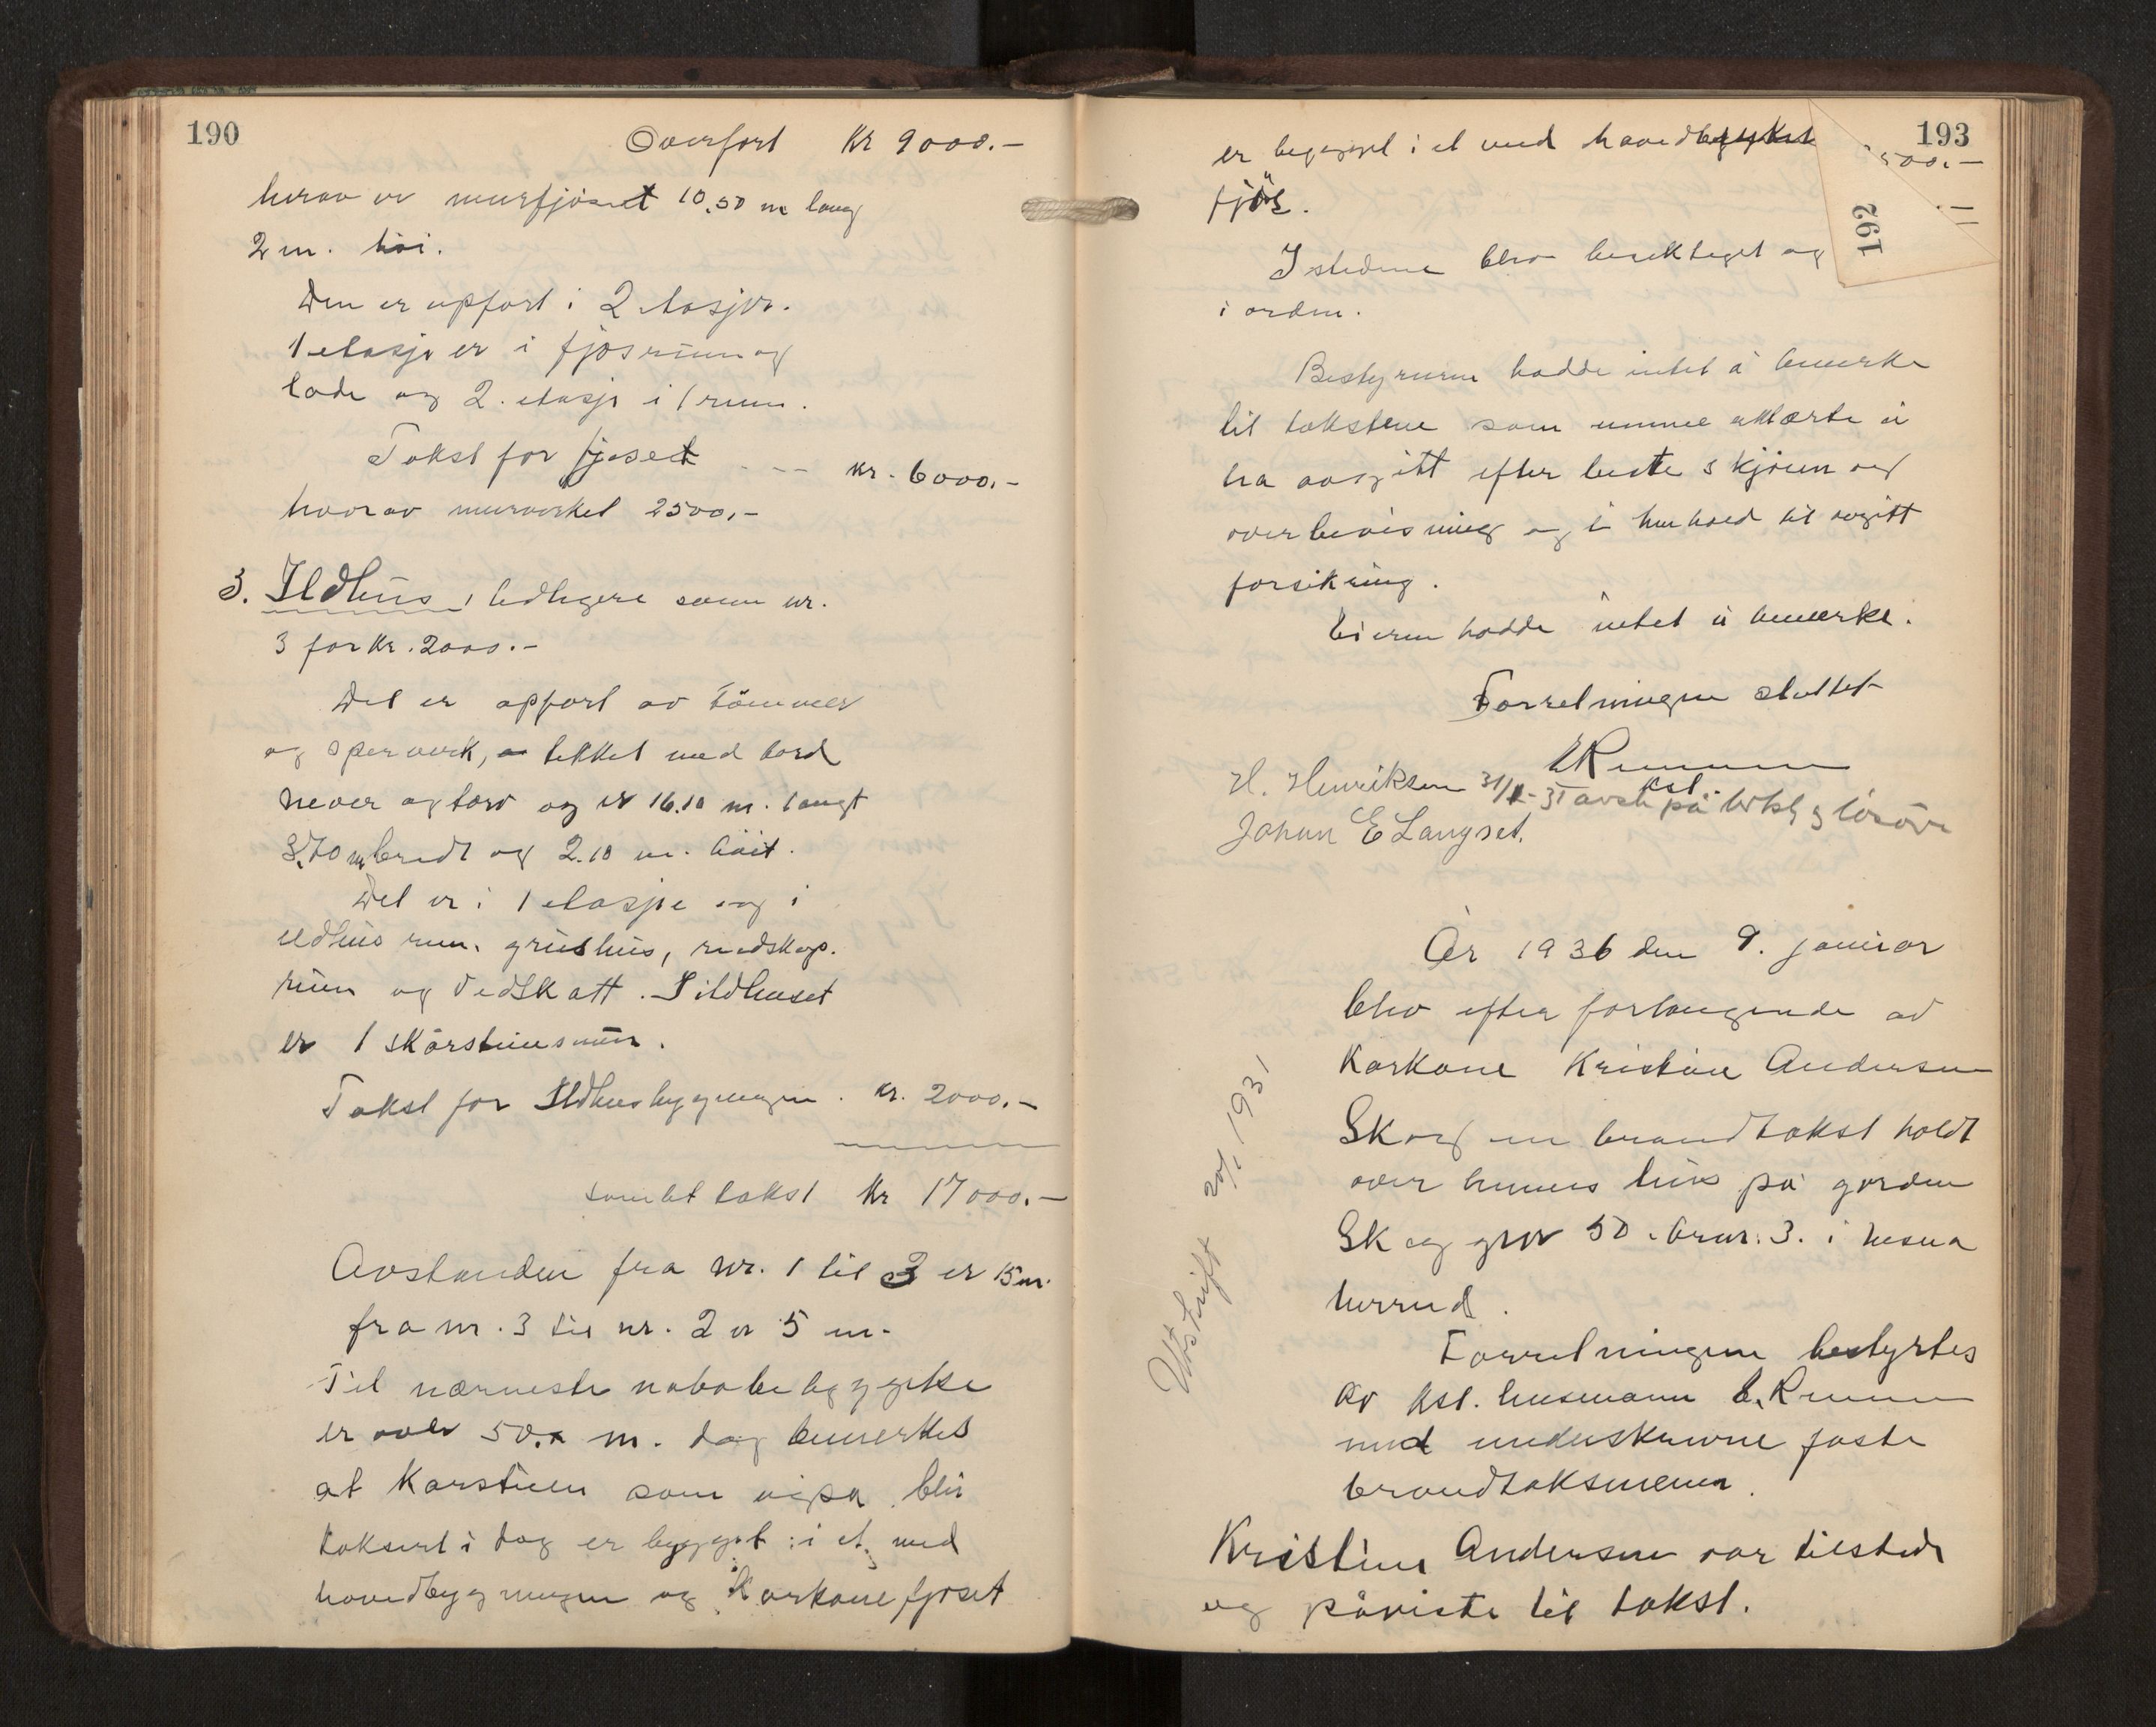 190
Overført Kr 9000.-
herav er murfjöset 10,50 m lang
2 m. höi.
Den er opført i 2 etasjer.
1 etasje er i fjösrum og
lade og 2. etasje i 1 rum.
Takst for fjöset - - - kr. 6000.-
hvorav murverket 2500,-
3. Ildhus, tidligere som nr.
3 for Kr. 2000.-
Det er opført av tömmer
og sperverk, tekket med bord
never og torv og er 16.10 m. langt
3,70 m bredt og 2.10 m. höit.
Det er i 1 etasje og i
ildhus rum, grishus, redskap.
rum og vedskått. I ildhuset
er 1 skorsteinsmur.
Takst for Ildhusbygningen. kr. 2000.-
samlet takst Kr 17000.-
Avstanden fra nr. 1 til 3 er 15 m.
fra nr. 3 til nr. 2 er 5 m.
Til nærmeste nabobebyggelse
er over 50 m. dog bemerkes
at Karstuen som også blir
taksert i dag er bygget i et med
hovedbygningen og Karkone fjöset
193
er bygget i et med hoved
500.-
fjös.
192
Ildstedene blev besiktiget og
i orden.
Bestyreren hadde intet å bemerke
til takstene som mennene erklærte å
ha avgitt efter beste skjönn og
overbevisning og i henhold til avgitt
forsikring.
Eieren hadde intet å bemerke.
Forretningen sluttet
E Remmen
kst.
H. Henriksen 31/1-31 avsk på
Johan E Langset.
År 1936 den 9. januar
blev efter forlangende av
Karkone Kristine Andersen
Skog en brandtakst holdt
over hennes hus på garden
Skog gnr 50. brnr. 3. i Nesna
herred.
Utskrift 20/1 1931
Forretningen bestyrtes
av kst. lensmann E. Remmen
med underskrevne faste
brandtaksmenn.
Kristine Andersen var tilstede
og påviste til takst.